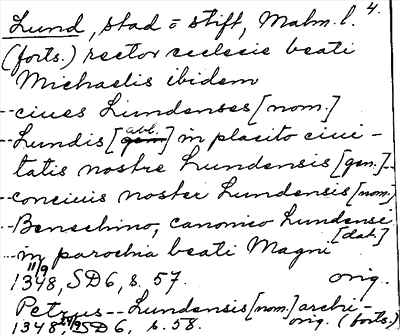 Lund, stad = stift, Malm. l. 4.
(forts.) rector ecclesie beati
Michaelis ibidem
--ciues Lundenses [nom.]
--Lundis [gen. abl.] in placito ciui-
tatis nostre Lundensis [gen.]--
--conciuis nostri Lundensis [nom.]
--Benechino, canonico Lundensi [dat.]
--in parochia beati Magni
1348 11/9, SD6, s. 57. orig.
Petrus -- Lundensis [nom.] archi-
1348, SD 6, s. 58. orig. (forts.)